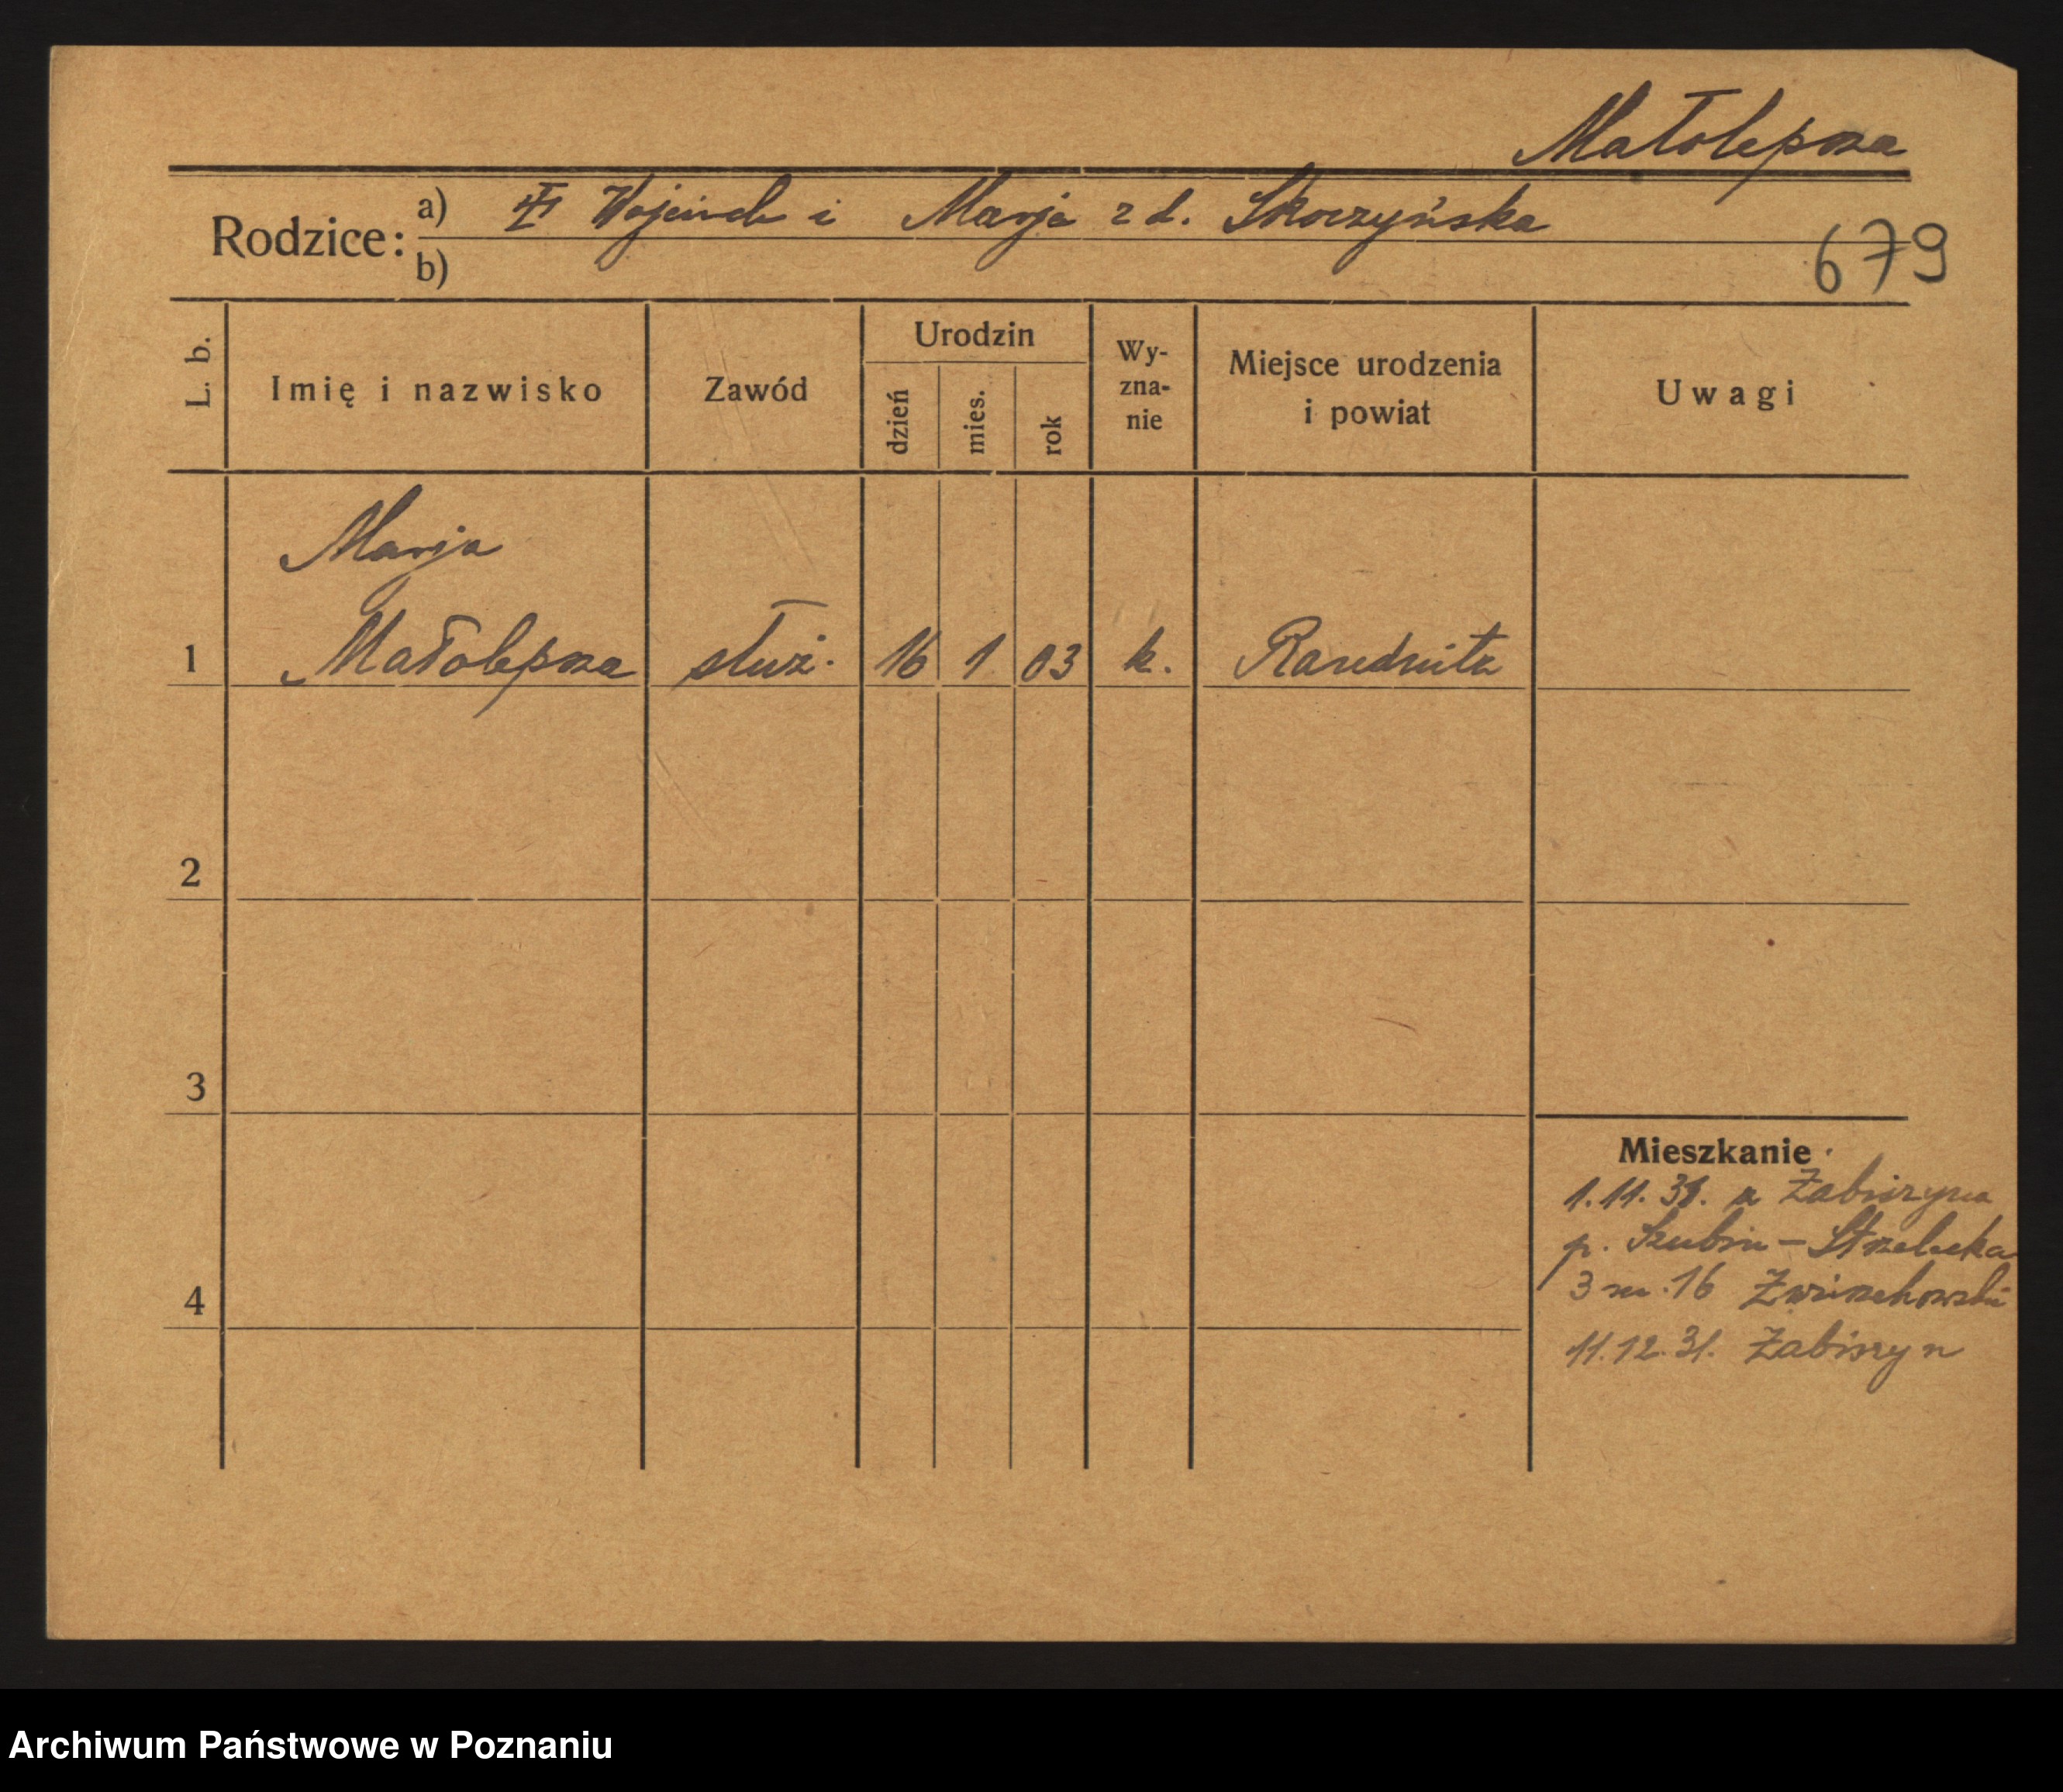 Małolepsza
Rodzice: a) Wojciech i Marja z d. Skoczyńska
b)
679
L. b. Imię i nazwisko Zawód Urodzin dzień mies. rok Wy-zna-nie Miejsce urodzenia i powiat Uwagi
Marja
1 Małolepsza służ. 16 1 03 k.
2
3
4
Mieszkanie
1.11.31. z Łabiszyna
p. Szubin – Strzelecka
3 m. 16
11.12.31. Łabiszyn
Archiwum Państwowe w Poznaniu